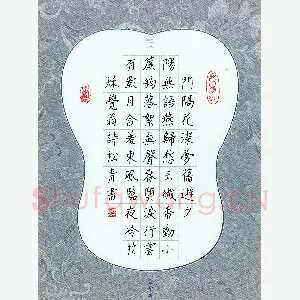 門隔花深夢舊遊夕
陽無語燕歸愁玉纖香動小
簾鉤落絮無聲春墮淚行雲
有影月含羞東風臨夜冷於
秋覺翁詩松青書